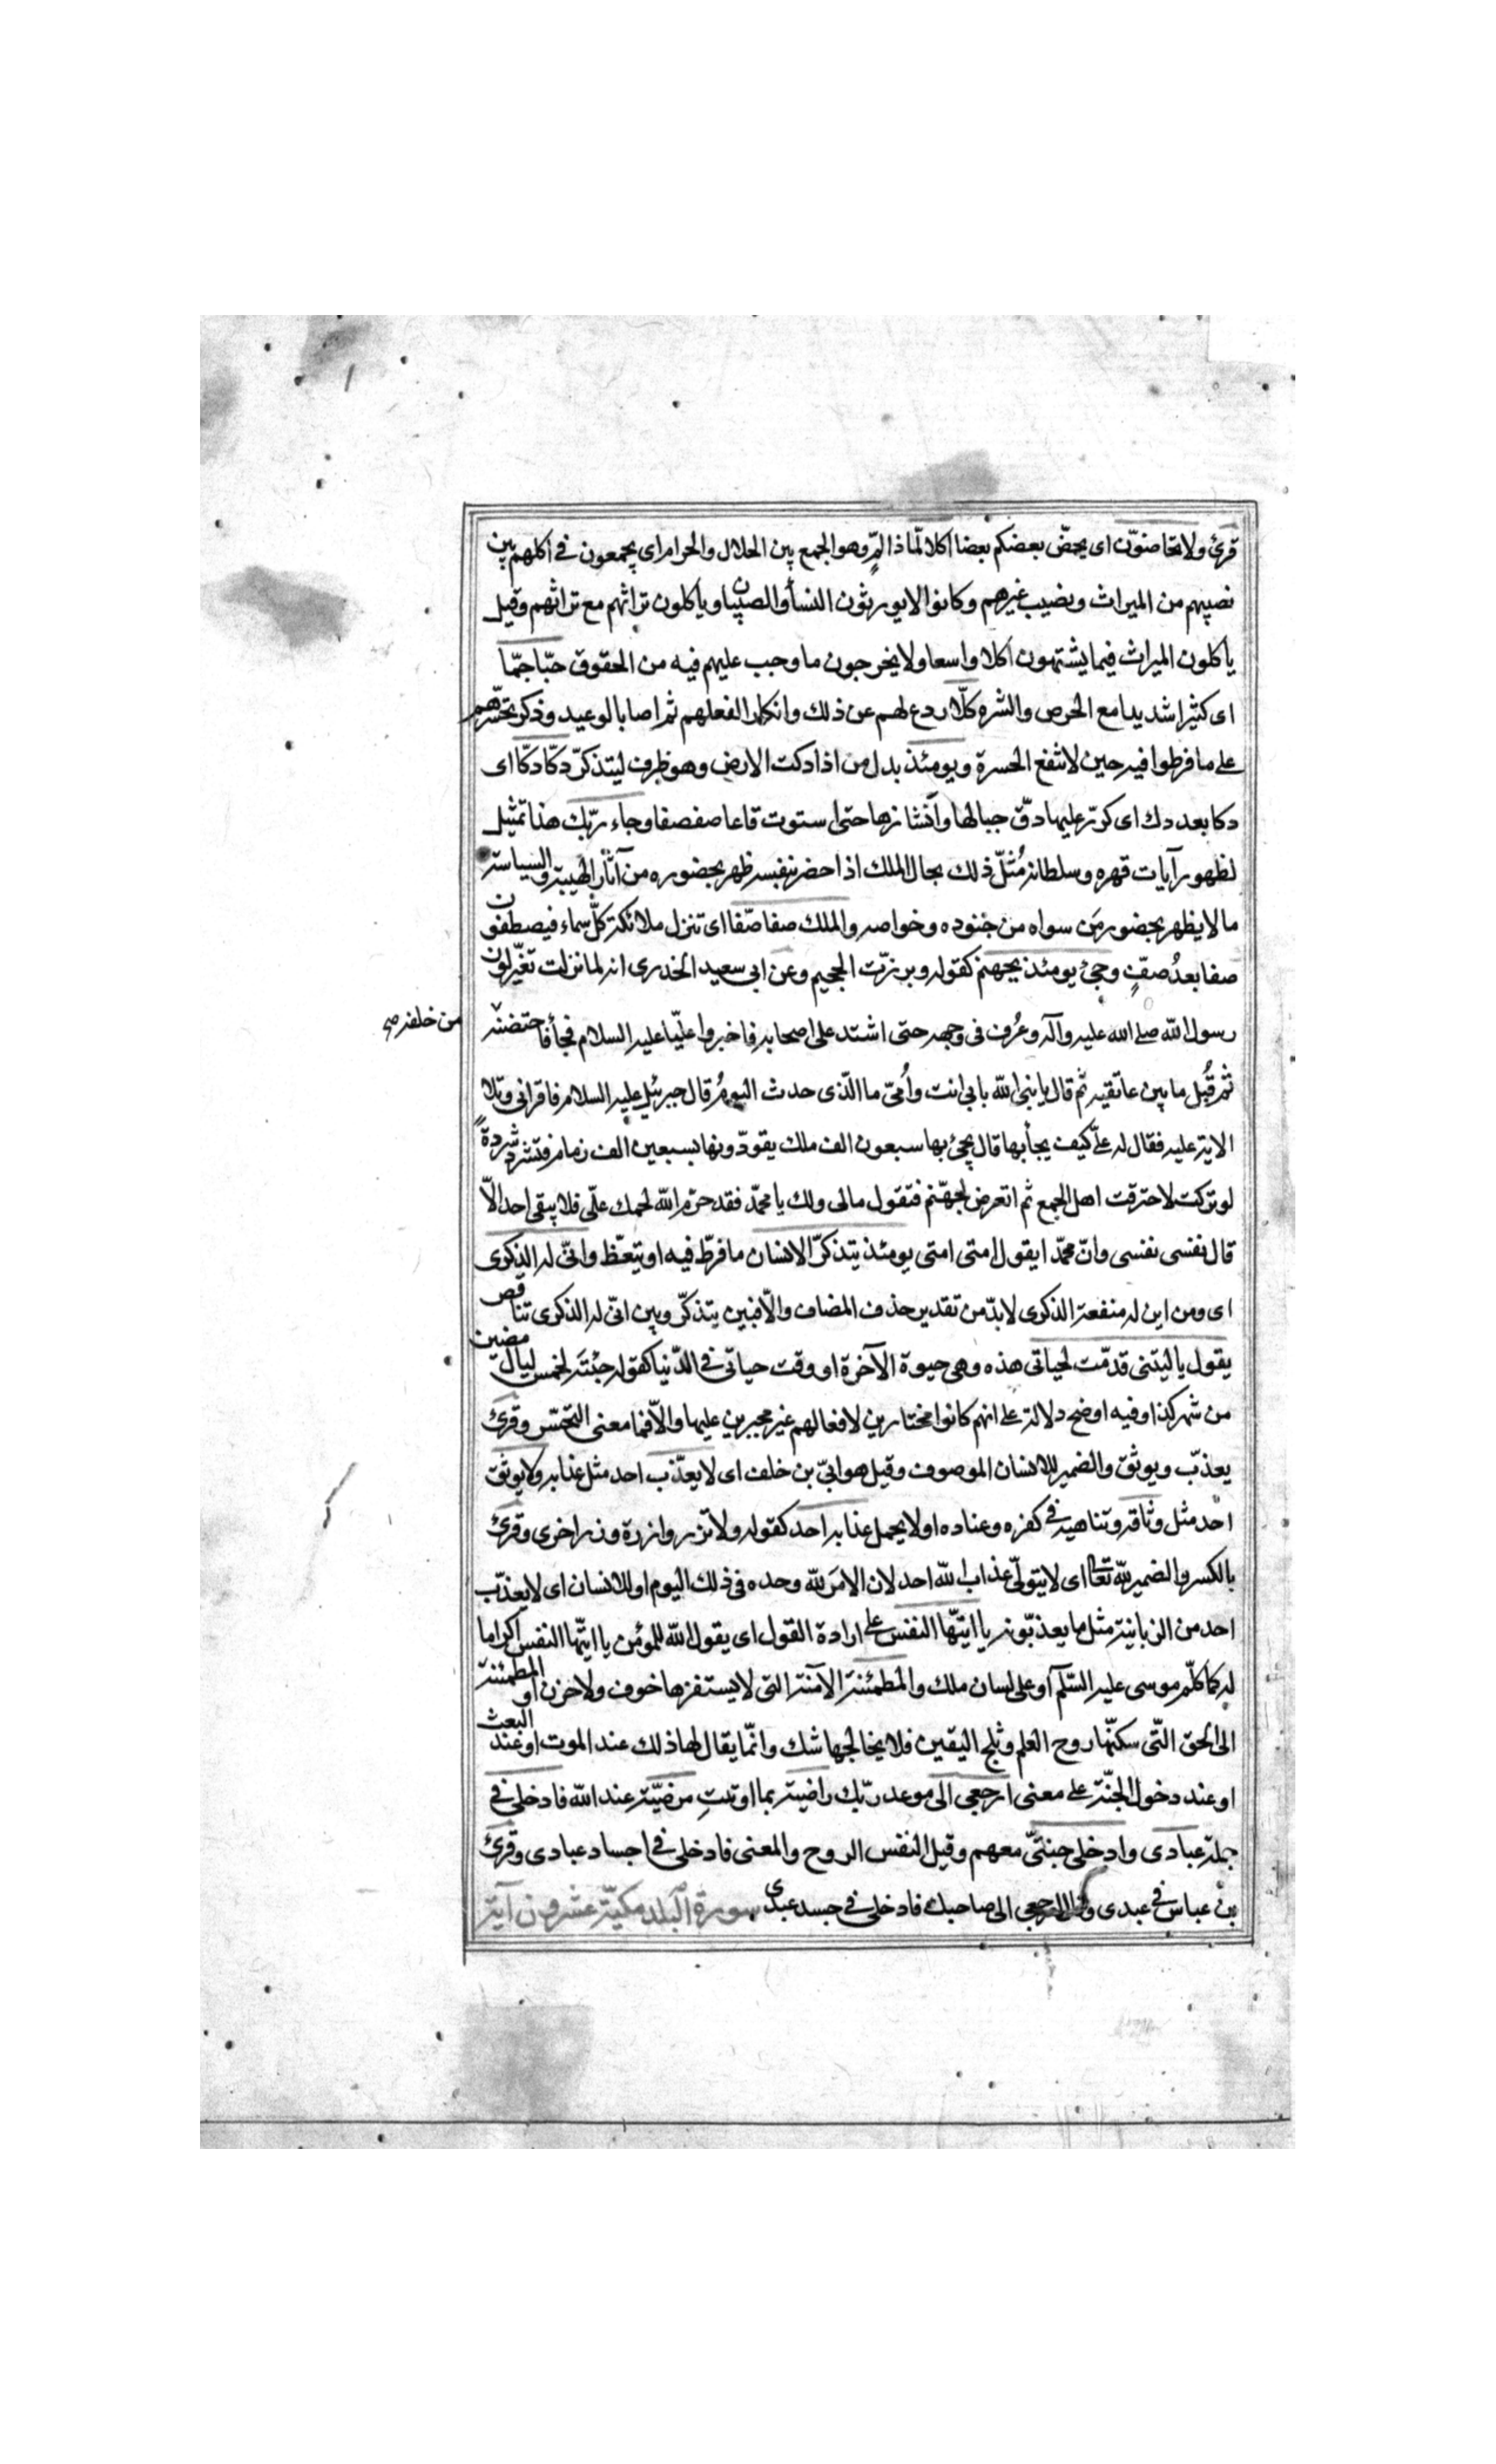 قرئ ولا تحاضّون اى يحضّ بعضكم بعضا اكلا لمّا ذا لمّ وهو الجمع بين الحلال والحرام اى يجمعون فى اكلهم بين
نصيبهم من الميراث ونصيب غيرهم وكانوا لا يورثون النسأ والصبيان وياكلون تراثهم مع تراثهم وقيل
ياكلون الميراث فيما يشتهون اكلا واسعا ولا يخرجون ما وجب عليهم فيه من الحقوق حبّا جمّا
اى كثيرا شديدا مع الحرص والشره كلّا ردع لهم عن ذلك وانكار لفعلهم ثم اصا بالوعيد وذكر تحسّرهم
على ما فرطوا فيه حين لا تنفع الحسرة ويومئذ بدل من اذا دكت الارض وهو ظرف ليتذكّر دكّا دكّا اى
دكا بعد دك اى كرّر عليها دقّ جبالها وانشازها حتى استوت قاعا صفصفا وجاء ربّك هذا تمثيل
لظهور آيات قهره وسلطانه مُثّل ذلك بحال الملك اذا حضر بنفسه ظهر بحضوره من آثار الهيبة والسياسة
ما لا يظهر بحضور مَن سواه من جنوده وخواصه والملك صفا صفّا اى تنزل ملائكة كلّ سماء فيصطفون
صفا بعدُ صفٍّ وجئ يومئذ بجهنم كقوله وبرزّت الجحيم وعن ابى سعيد الخدرى انه لما نزلت تغيّر لون
رسول الله صلى الله عليه وآله وعُرف فى وجهه حتى اشتد على اصحابه فاخبروا عليّا عليه السلام فجأ فاحتضنه
من خلفه صح
ثم قُبل ما بين عاتقيه ثم قال يا نبى الله بابى انت وأمىّ ما الّذى حدث اليومُ قال جبرئيل عليه السلام فاقرانى وتلا
الاية عليه فقال له علىّ كيف يجأ بها قال يجئ بها سبعون الف ملك يقودّونها بسبعين الف زمام فتشرد شردةً
لو تركت لاحترقت اهل الجمع ثم اتعرض لجهنّم فتقول مالى ولك يا محمّد فقد حرّم الله لحمك علىّ فلا يبقى احد الاّ
قال نفسى نفسى وانّ محمّدا يقول امتى امتى يومئذ يتذكرّ الانسان ما فرطّ فيه او يتعّظ وانىّ له الذكرى
اى ومن اين له منفعة الذكرى لا بدّ من تقدير حذف المضاف والاّ فبين يتذكّر وبين انىّ له الذكرى تناقص
يقول يا ليتنى قدمّت لحياتى هذه وهى حيوة الآخرة او وقت حياتى فى الدّنيا كقوله جئتَه لخمس ليال مضين
من شهر كذا وفيه اوضح دلالة على انهم كانوا مختارين لافعالهم غير مجبرين عليها والاّ فما معنى التحسّر وقرئ
يعذب ويوثق والضمير للانسان الموصوف وقيل هو ابىّ بن خلف اى لا يعذّب احد مثل عذابه ولا يوثق
احد مثل وثاقه وتناهيه فى كفره وعناده او لا يحمل عذابه احد كقوله ولا تزر وازرة وزر اخرى وقرئ
بالكسر والضمير لله تعالى اى لا يتولّى عذاب الله احد لان الامرَ لله وحده فى ذلك اليوم او للانسان اى لا يعذّب
احد من الزبانية مثل ما يعذبّونه يا ايتهّا النفس على ارادة القول اى يقول الله للمؤمن يا ايتّها النفس اكراما
له كما كلّم موسى عليه السّلم او على لسان ملك والمطمئنة الآمنة التى لا يستفزها خوف ولا حزن او المطمئنة
الى الحق التّى سكنّها روح العلم وثلج اليقين فلا يخالجها شك وانّما يقال لها ذلك عند الموت او عند البعث
او عند دخول الجنّة على معنى ارجعى الى موعد ربّك راضية بما اوتيتِ مرضيّة عند الله فادخلى فى
جملة عبادى وادخلى جنتىّ معهم وقيل النفس الروح والمعنى فادخلى فى اجساد عبادى وقرئ
بن عباس فى عبدى ارجعى الى صاحبك فادخلى فى جسد عبدى سورة البلد مكيّة عشرون آية